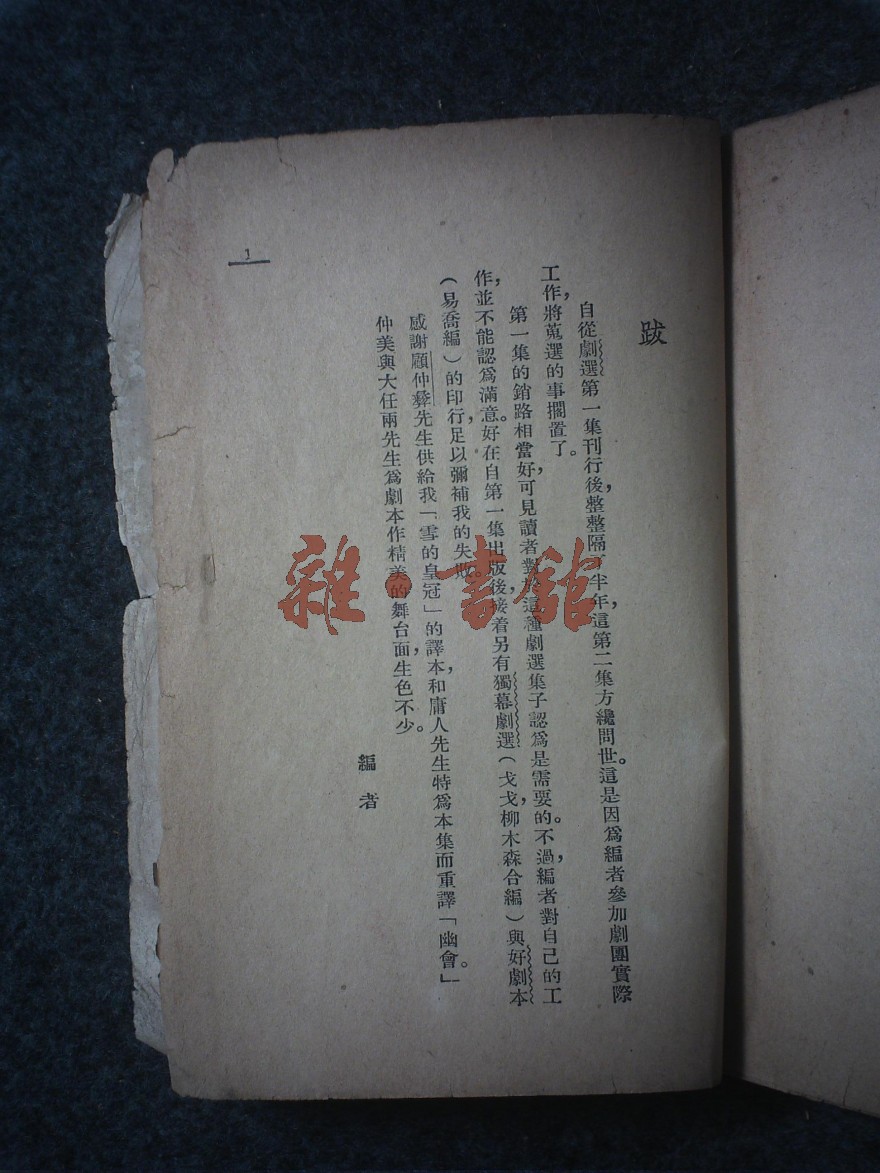 跋
自從劇選第一集刊行後,整整隔了半年,這第二集方纔問世。這是因爲編者參加劇團實際
工作,將蒐選的事擱置了。
第一集的銷路相當好,可見讀者對於這種劇選集子認爲是需要的。不過,編者對自己的工
作,並不能認爲滿意。好在自第一集出版後,接着另有獨幕劇選(戈戈,柳木森合編)與好劇本
(易喬編)的印行,足以彌補我的失敗。
感謝顧仲彝先生供給我「雪的皇冠」的譯本,和庸人先生特爲本集而重譯「幽會。」
仲美與大任兩先生爲劇本作精美的舞台面,生色不少。
編者
1
雜·書館